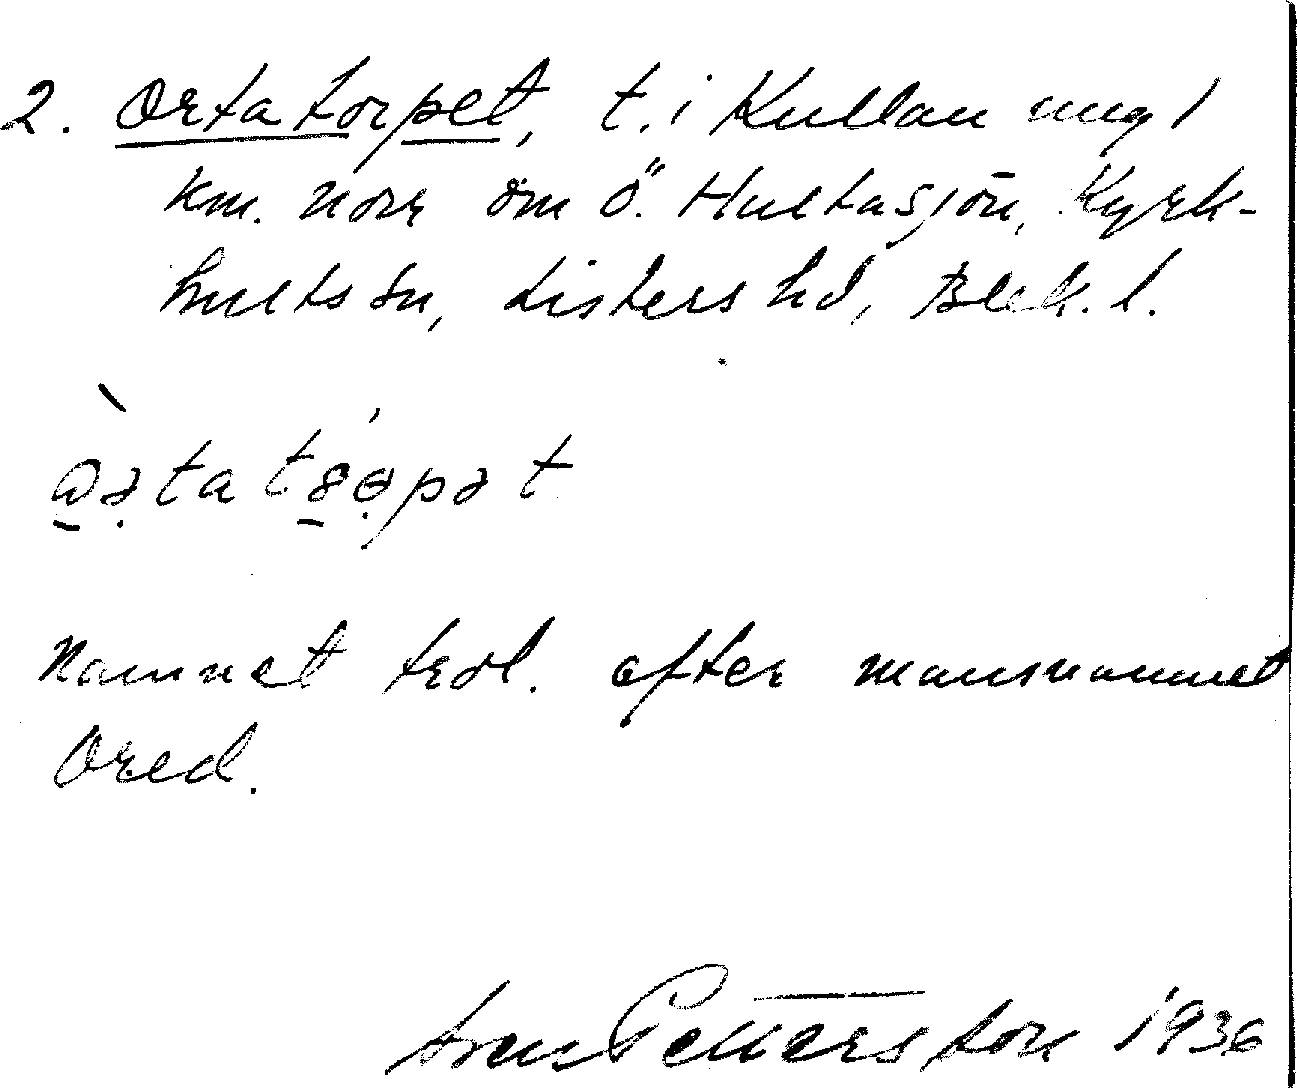 2. Ortatorpet, t. i Kullan ung 1
km. norr om Ö. Hultasjön, Kyrk-
hults sn, Listers hd, Blek. l.
Namnet trol. after mansnamnet
Ored.
Pettersson 1936